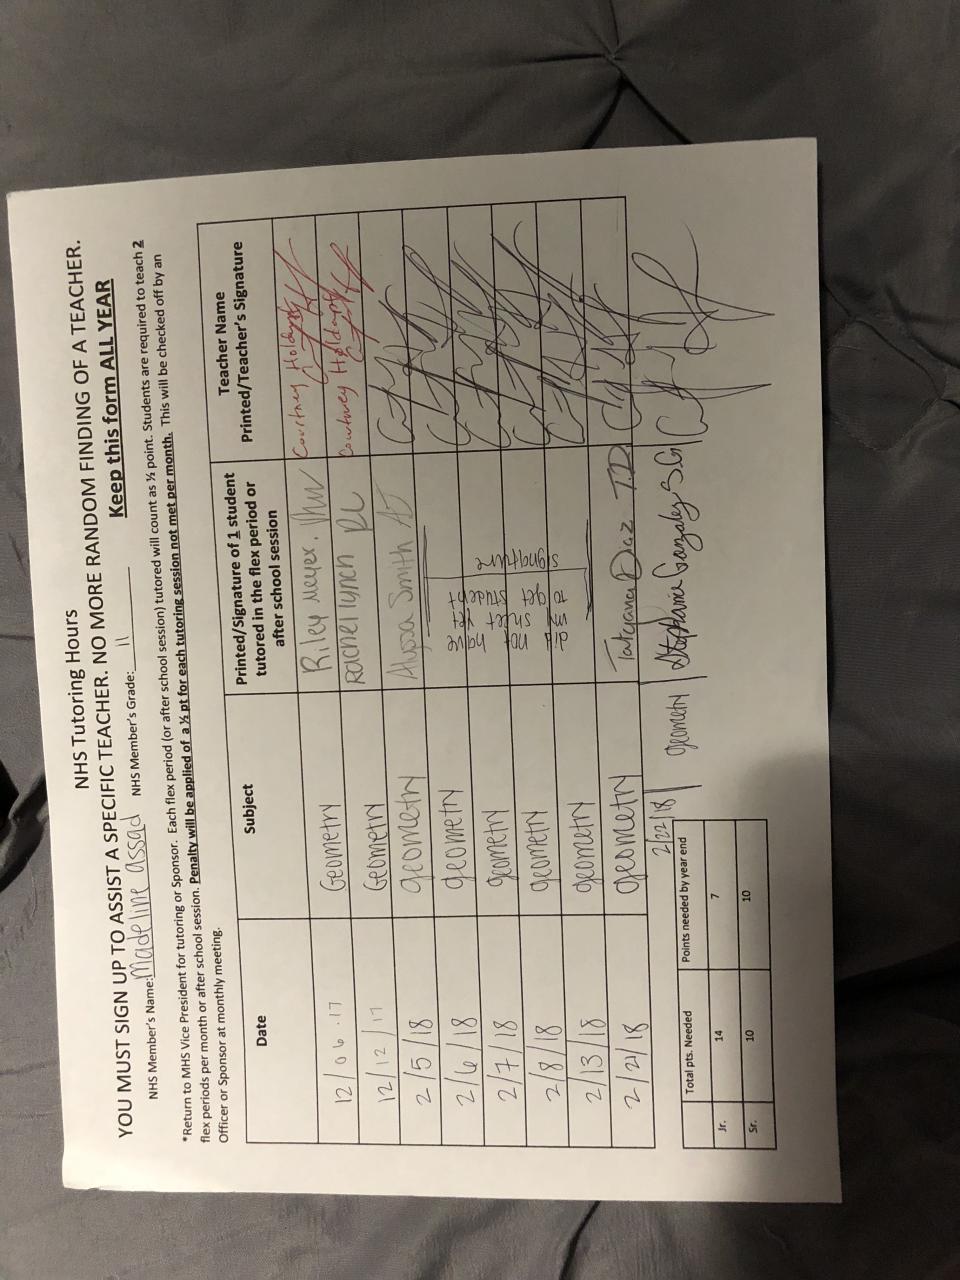 NHS Tutoring Hours
YOU MUST SIGN UP TO ASSIST A SPECIFIC TEACHER. NO MORE RANDOM FINDING OF A TEACHER.
Keep this form ALL YEAR
NHS Member's Name: Madeline Assad NHS Member's Grade: 11
*Return to MHS Vice President for tutoring or Sponsor. Each flex period (or after school session) tutored will count as ½ point. Students are required to teach 2
flex periods per month or after school session. Penalty will be applied of a ½ pt for each tutoring session not met per month. This will be checked off by an
Officer or Sponsor at monthly meeting.
Date Subject Printed/Signature of 1 student tutored in the flex period or after school session Teacher Name Printed/Teacher's Signature
12/06.17 Geometry Riley Meyer. Courtney
12/12/17 Geometry Rachel Lynch RL Courtney
2/5/18 geometry Alyssa Smith AS
2/6/18 geometry
2/7/18 geometry
2/8/18 geometry
2/13/18 geometry
did not have my sheet yet to get student signature
2/21/18 geometry Tatyana Diaz T.D.
2/22/18 geometry Stephania Gonzalez S.G
Total pts. Needed Points needed by year end
Jr. 14 7
Sr. 10 10